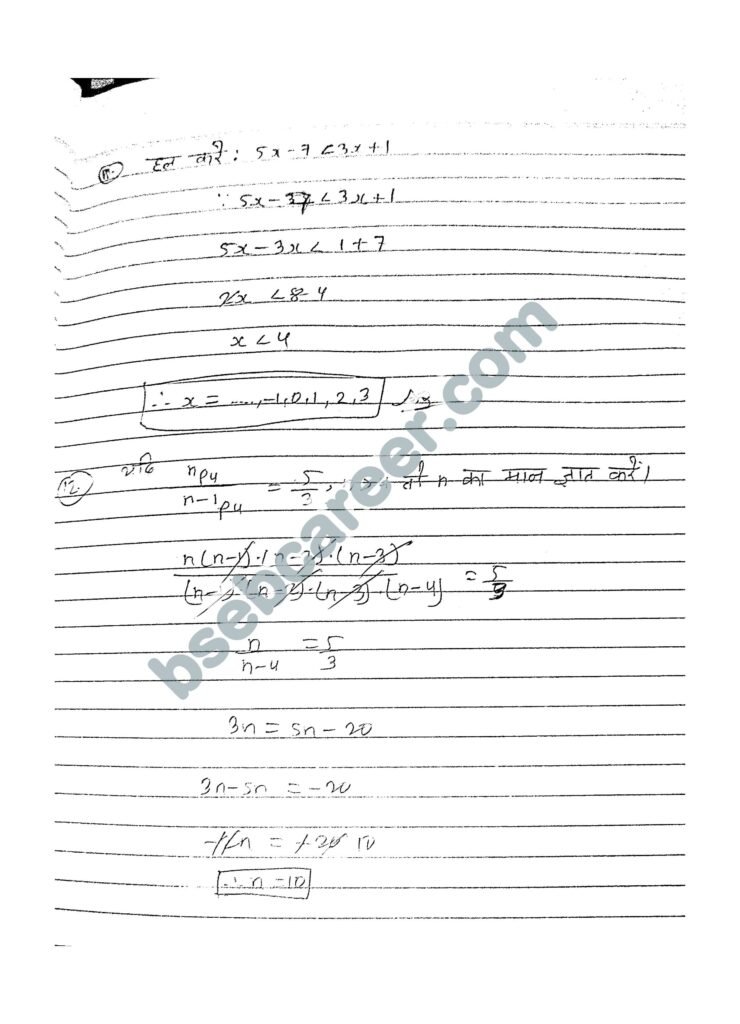 11. हल करें: 5x-7 < 3x+1
∵ 5x-7 < 3x+1
5x-3x < 1+7
2x < 8 4
x < 4
∴ x = ....,-1,0,1,2,3
12. यदि nP4 / n-1P4 = 5/3, तो n का मान ज्ञात करें।
n(n-1)·(n-2)·(n-3) / (n-1)·(n-2)·(n-3)·(n-4) = 5/3
n / n-4 = 5/3
3n = 5n-20
3n-5n = -20
-2n = -20 10
∴ n = 10
bsebcareer.com